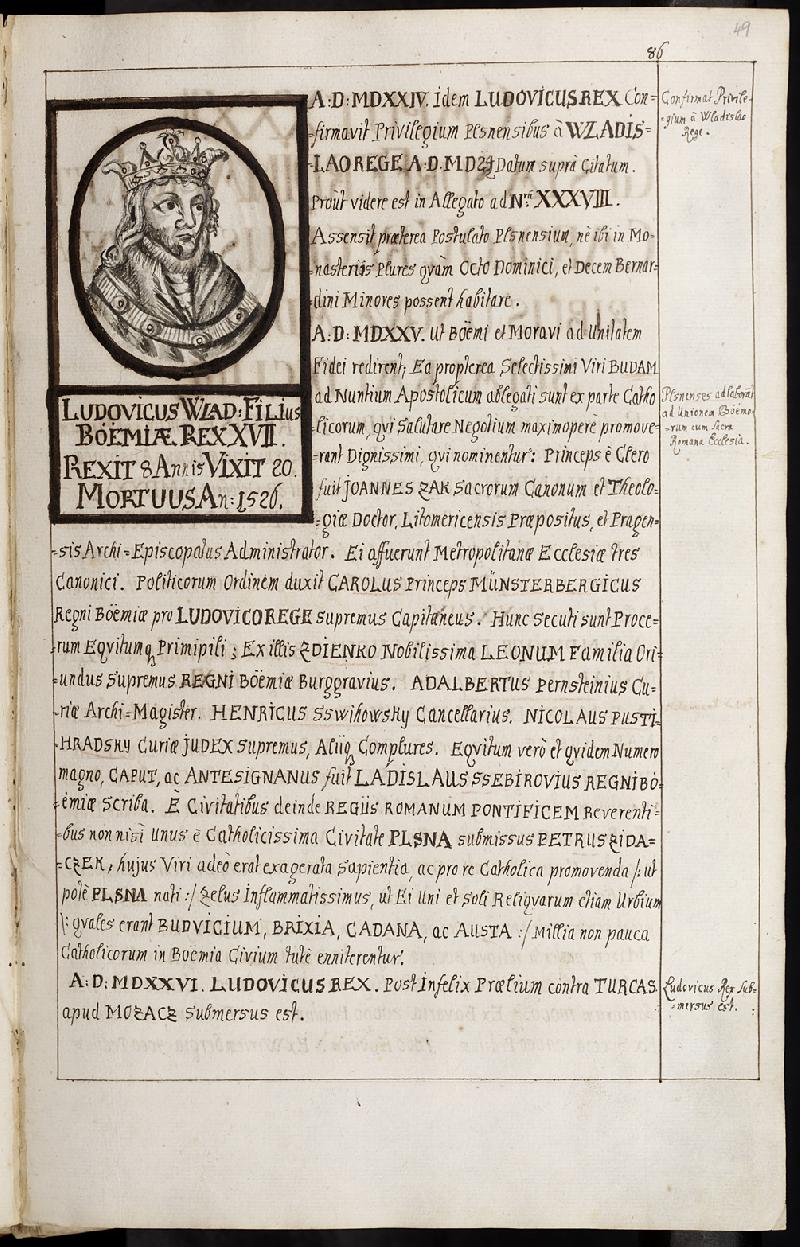 49
86
A: D: MDXXIV. Idem LUDOVICUS REX Con=
=firmavit Privilegium Plsnensibus à WLADIS=
=LAO REGE A. D. MD Datum supra Citatum.
Proût videre est in Allegato ad Nrũ XXXVIII.
Assensit præterea Postulato Plsnensium, nè ibi in Mo=
=nasteriis Plures qvàm Octo Dominici, et Decem Bernar=
=dini Minores possent habitare.
A: D: MDXXV. ut Boëmi et Moravi ad Unitatem
Fidei redirent, Ea propterea Selectissimi Viri BUDAM
ad Nuntium Apostolicum ablegati sunt ex parte Catho=
=licorum, qvi Salutare Negotium maximoperè promove=
=rant Dignissimi, qvi nominentur: Princeps è Clero
fuit JOANNES ZAK Sacrorum Canonum et Theolo=
=giæ Doctor, Litomericensis Præpositus, et Pragen=
=sis Archi=Episcopatus Administrator. Ei affuerunt Metropolitanæ Ecclesiæ tres
Canonici. Politicorum Ordinem duxit CAROLUS Princeps MÜNSTERBERGICUS
Regni Böemiæ pro LUDOVICO REGE supremus Capitaneus. Hunc Secuti sunt Proce=
=rum Eqvitumq Primipili; Ex illis ZDIENKO Nobilissima LEONUM Familia Ori=
=undus Supremus REGNI Böëmiæ Burggravius. ADALBERTUS Pernsteinius Cu=
=riæ Archi=Magister. HENRICUS Sswihowsky Cancellarius. NICOLAUS PUSTI=
=HRADSKY Curiæ JUDEX supremus, Aliiq Complures. Eqvitum verò et qvidem Numero
magno, CAPUT, ac ANTESIGNANUS fuit LADISLAUS SSEBIROVIUS REGNI BÖ=
=ëmiæ Scriba. È Civitatibus deinde REGIIS ROMANUM PONTIFICEM Reverenti=
=bus non nisi Unus è Catholicissima Civitate PLSNA submissus PETRUS ZIDA=
=CZEK, hujus Viri adeò erat exagerata Sapientia, ac pro re Catholica promovenda /: ut
potè PLSNA nati :/ Zelus Inflammatissimus, ut Ei Uni et Soli Reliqvarum etiam Urbium
/: qvales erant BUDVICIUM, BRIXIA, CADANA, ac AUSTA :/ Millia non pauca
Catholicorum in Boemia Civium tutè enniterentur.
A: D: MDXXVI. LUDOVICUS REX. Post Infelix Prælium contra TURCAS
apud MOZACZ Submersus est.
LUDOVICUS WLAD: FILIUS
BÖEMIÆ REX XVII.
REXIT 8 Annis VIXIT 20.
MORTUUS An: 1526.
Confirmat Privile=
=gium à Wladislao
Rege.
Plsnenses ad laborant
ad Unionem Boëmo=
=rum cum Sacra
Romana Ecclesia.
Ludovicus Rex Sub=
=mersus est.